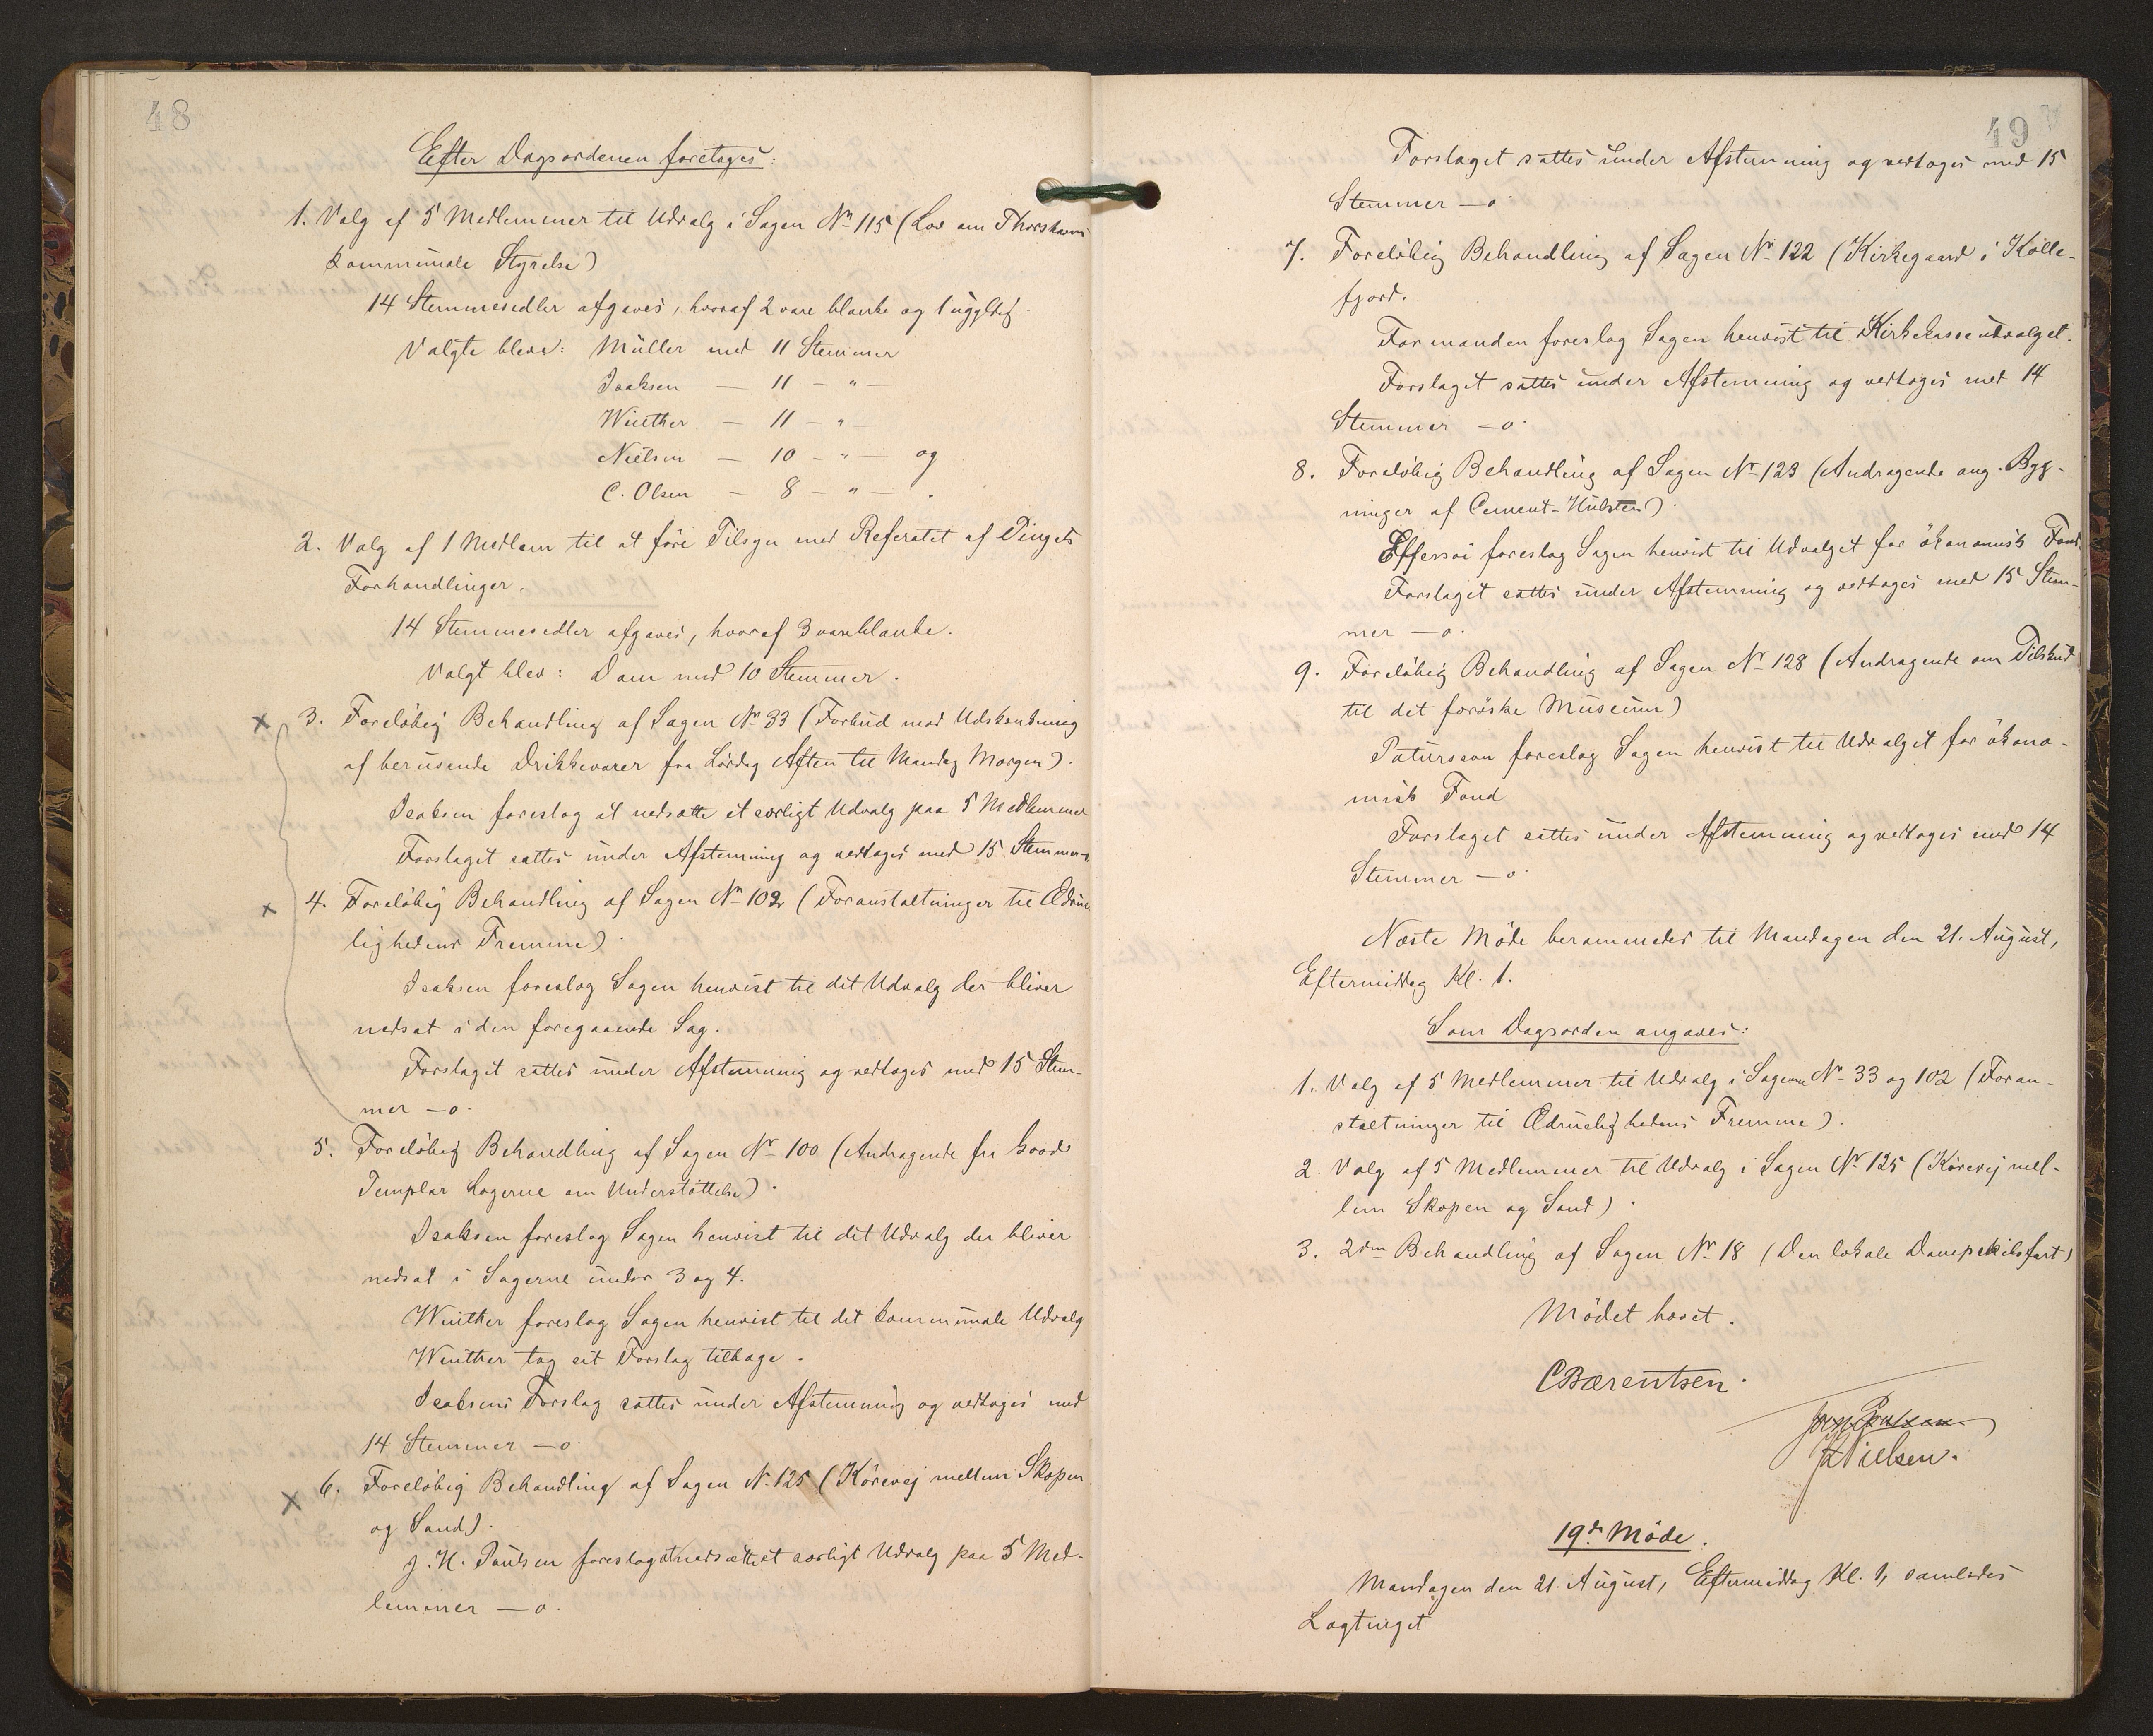 48
Efter Dagsordenen foretoges:
1. Valg af 5 Medlemmer til Udvalg i Sagen Nr 115 (Lov om Thorshavns
kommunale Styrelse)
14 Stemmesedler afgaves, hvoraf 2 vare blanke og 1 ugyldig.
Valgte bleve: Müller med 11 Stemmer
Isaksen — 11 — " —
Winther — 11 — " —
Nielsen — 10 — " — og
C. Olsen — 8 — " — .
2. Valg af 1 Medlem til at føre Tilsyn med Referatet af Tingets
Forhandlinger.
14 Stemmesedler afgaves, hvoraf 3 vare blanke.
Valgt blev: Dam med 10 Stemmer.
x 3. Foreløbig Behandling af Sagen Nr 33 (Forbud mod Udskænkning
af berusende Drikkevarer fra Lørdag Aften til Mandag Morgen).
Isaksen foreslog at nedsætte et særligt Udvalg paa 5 Medlemmer
Forslaget sattes under Afstemning og vedtoges med 15 Stemmer
x 4. Foreløbig Behandling af Sagen Nr 102 (Foranstaltninger til Ædrue
lighedens Fremme).
Isaksen foreslog Sagen henvist til det Udvalg der bliver
nedsat i den foregaaende Sag.
Forslaget sattes under Afstemning og vedtoges med 15 Stem-
mer —o.
5. Foreløbig Behandling af Sagen Nr 100 (Andragende fra Good
Templar Logerne om Understøttelse).
Isaksen foreslog Sagen henvist til det Udvalg der bliver
nedsat i Sagerne under 3 og 4.
Winther foreslog Sagen henvist til det kommunale Udvalg
Winther tog sit Forslag tilbage.
Isaksens Forslag sattes under Afstemning og vedtoges med
14 Stemmer —o.
x 6. Foreløbig Behandling af Sagen Nr 125 (Kørevej mellem Skopen
og Sand).
J. H. Poulsen foreslog at nedsætte et særligt Udvalg paa 5 Med-
lemmer —o.
49
Forslaget sattes under Afstemning og vedtoges med 15
Stemmer —o.
7. Foreløbig Behandling af Sagen Nr 122 (Kirkegaard i Kolle-
fjord.
Formanden foreslog Sagen henvist til Kirkekasseudvalget.
Forslaget sattes under Afstemning og vedtoges med 14
Stemmer —o.
8. Foreløbig Behandling af Sagen Nr 123 (Andragende ang. Byg-
ninger af Cement-Hulsten).
Effersøe foreslog Sagen henvist til Udvalget for økonomisk Fond.
Forslaget sattes under Afstemning og vedtoges med 15 Stem-
mer —o.
9. Foreløbig Behandling af Sagen Nr 128 (Andragende om Tilskud
til det færøske Museum)
Patursson foreslog Sagen henvist til Udvalget for økono-
misk Fond
Forslaget sattes under Afstemning og vedtoges med 14
Stemmer —o.
Næste Møde berammedes til Mandagen den 21. August,
Eftermiddag Kl. 1.
Som Dagsorden angaves:
1. Valg af 5 Medlemmer til Udvalg i Sagerne Nr 33 og 102 (Foran-
staltninger til Ædruelighedens Fremme).
2. Valg af 5 Medlemmer til Udvalg i Sagen Nr 125 (Kørevej mel-
lem Skopen og Sand).
3. 2den Behandling af Sagen Nr 18 (Den lokale Dampskibsfart)
Mødet hævet.
CBærentsen.
JNielsen.
19de Møde.
Mandagen den 21. August, Eftermiddag Kl. 1, samledes
Lagtinget